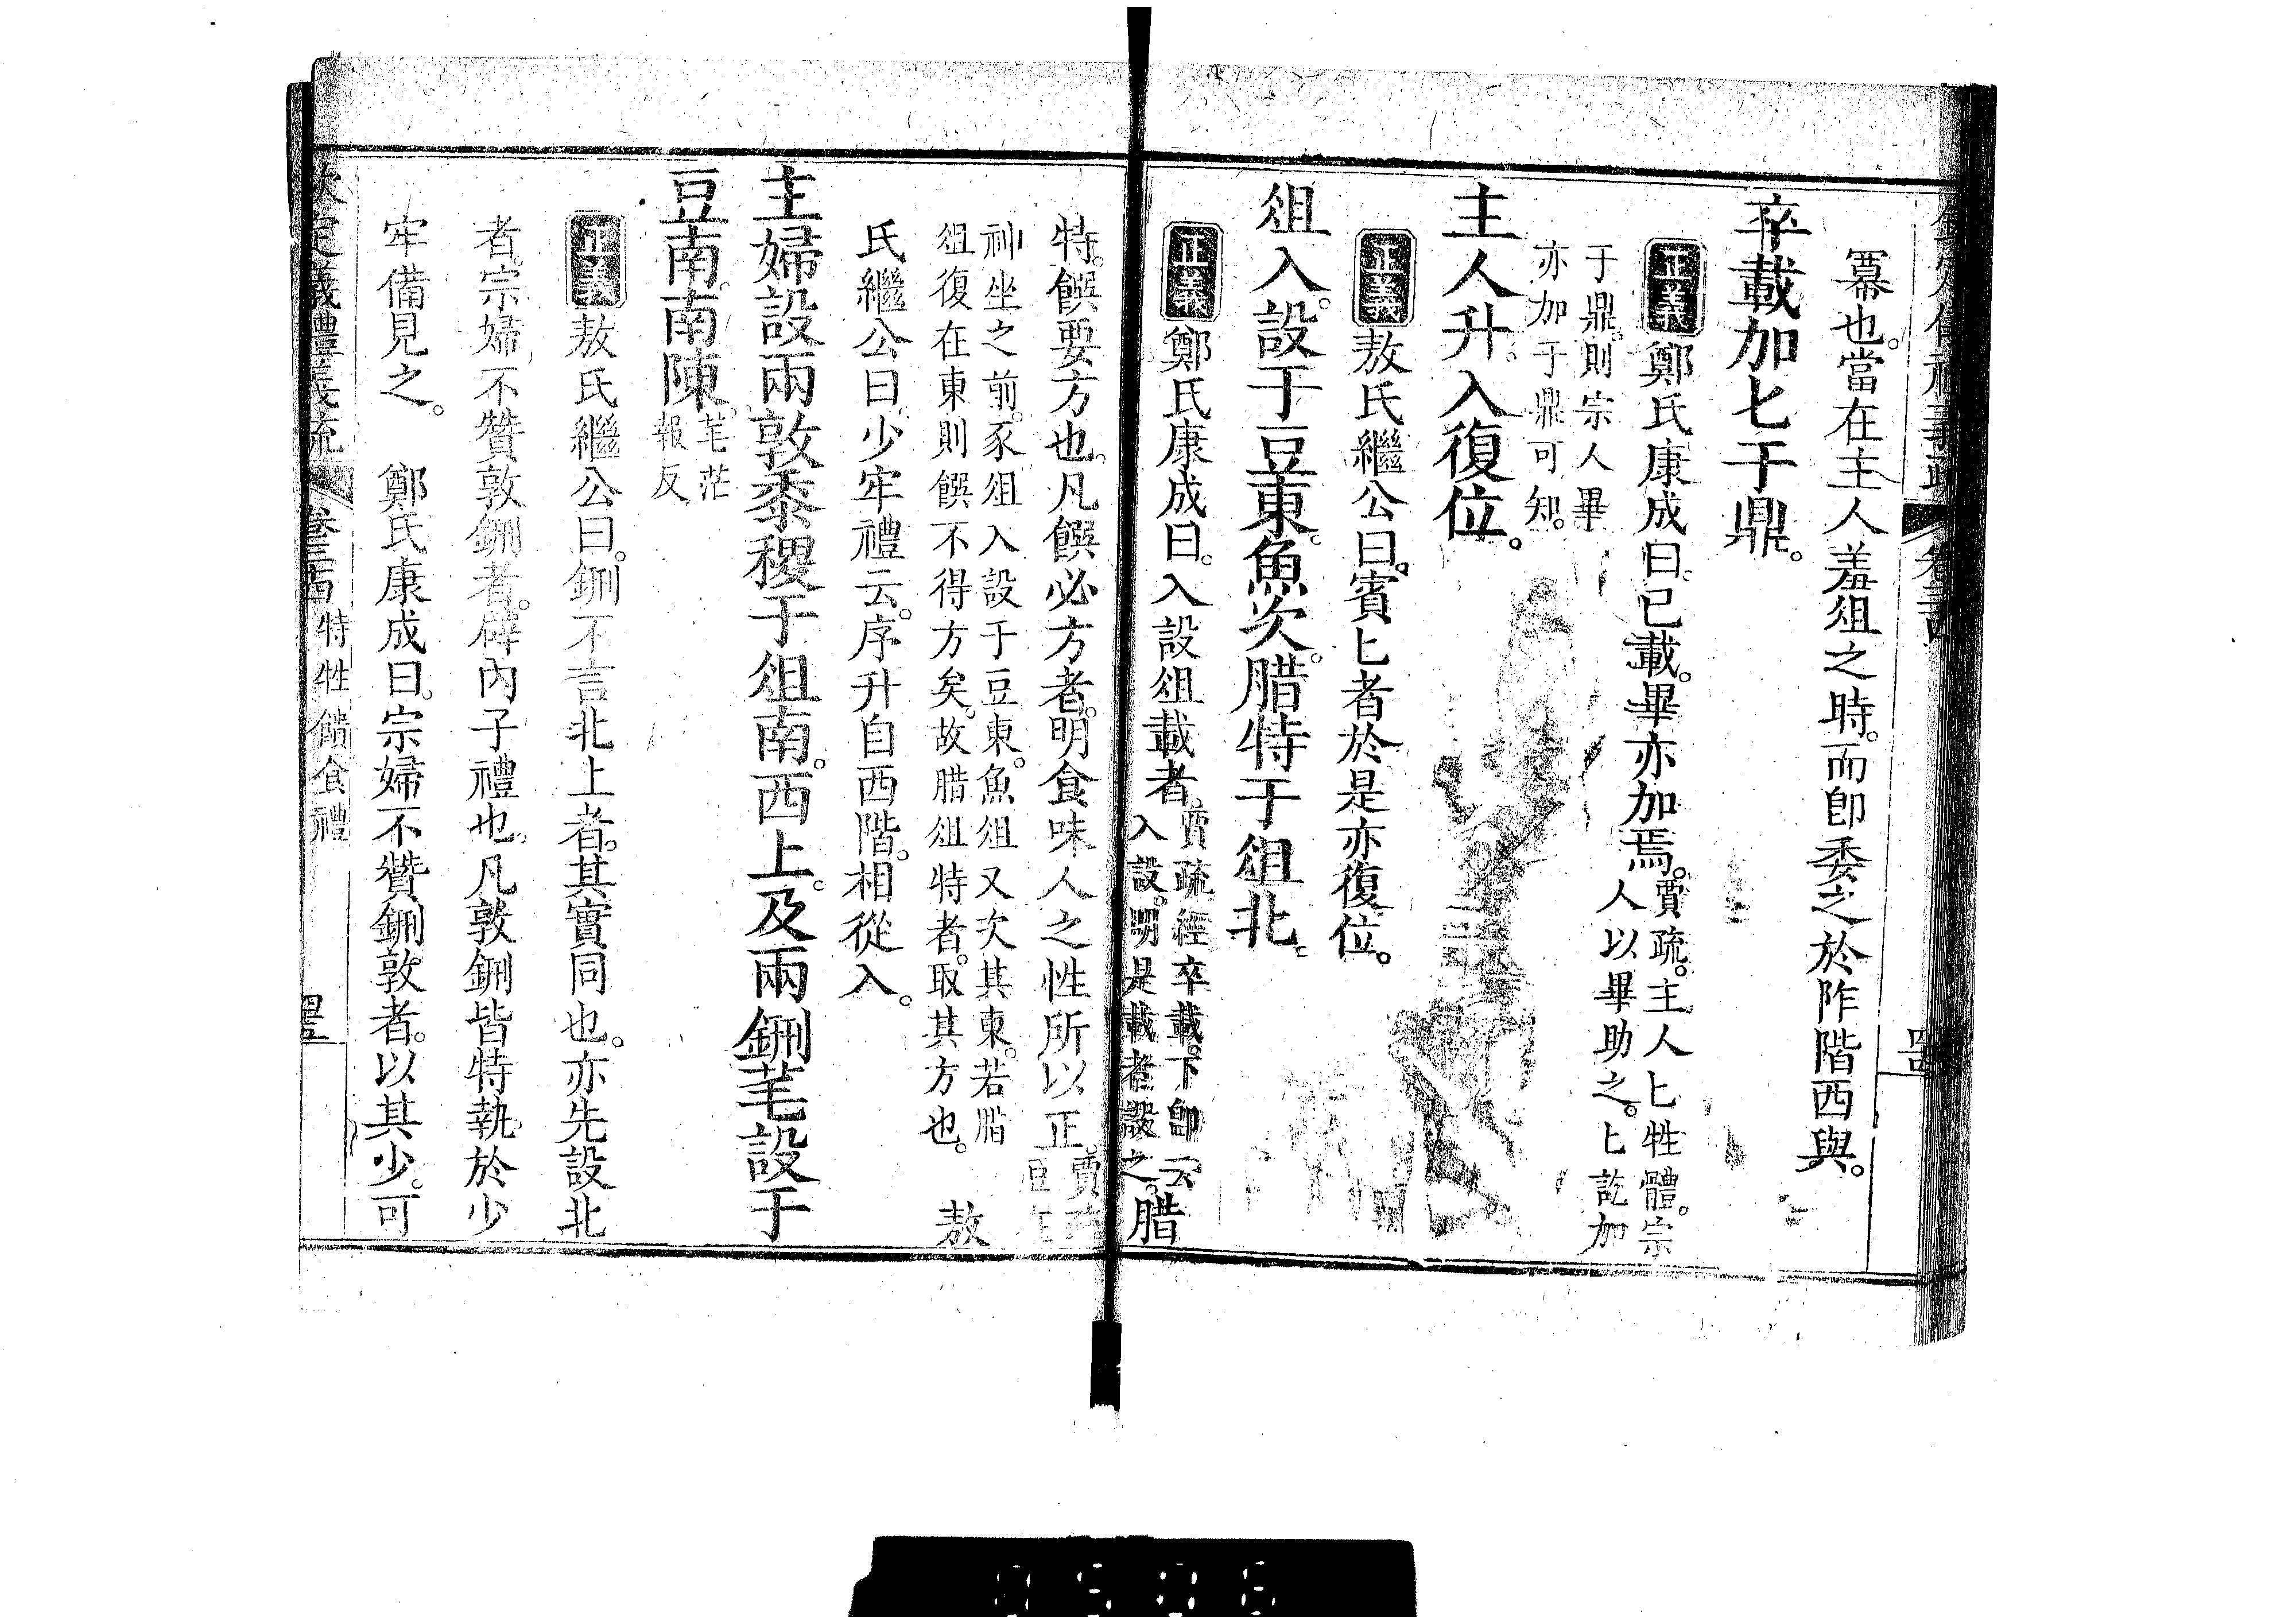 冪也。當在主人羞俎之時。而卽委之於阼階西與。
卒載加匕于鼎。
正義鄭氏康成曰。已載。畢亦加焉。賈疏。主人匕牲體。宗
人以畢助之。匕訖加
于鼎。則宗人畢
亦加于鼎可知。
主人升。入復位。
正義敖氏繼公曰。賓匕者於是亦復位。
俎入。設于豆東。魚次。腊特于俎北。
正義鄭氏康成曰。入設俎載者。賈疏經卒載。下卽云
入設。明是載者設之。腊
特。饌要方也。凡饌必方者。明食味人之性所以正。賈
神坐之前。豕俎入設于豆東。魚俎又次其東。若腊
俎復在東則饌不得方矣。故腊俎特者。取其方也。 敖
氏繼公曰。少牢禮云。序升自西階。相從入。
主婦設兩敦黍稷于俎南。西上。及兩鉶芼設于
豆南。南陳。芼茫
報反
正義敖氏繼公曰。鉶不言北上者。其實同也。亦先設北
者。宗婦不贊敦鉶者。辟內子禮也。凡敦鉶皆特執。於少
牢備見之。 鄭氏康成曰。宗婦不贊鉶敦者。以其少。可
欽定儀禮義疏 卷三十四 特牲饋食禮